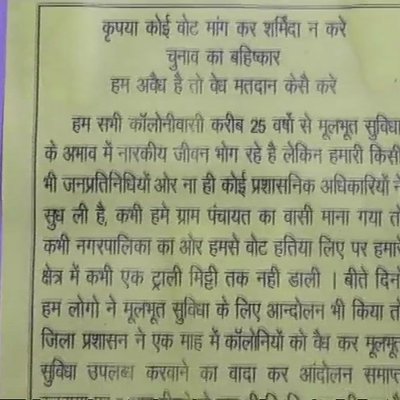 कृपया कोई वोट मांग कर शर्मिंदा न करे
चुनाव का बहिष्कार
हम अवैध है तो वेध मतदान केसै करे
हम सभी कॉलोनीवासी करीब 25 वर्षो से मूलभूत सुविधा
के अभाव में नारकीय जीवन भोग रहे है लेकिन हमारी किसी
भी जनप्रतिनिधियों ओर ना ही कोई प्रशासनिक अधिकारियों ने
सुध ली है, कभी हमे ग्राम पंचायत का वासी माना गया तो
कभी नगरपालिका का ओर हमसे वोट हतिया लिए पर हमारे
क्षेत्र में कभी एक ट्राली मिट्टी तक नही डाली । बीते दिन
हम लोगो ने मूलभूत सुविधा के लिए आन्दोलन भी किया तो
जिला प्रशासन ने एक माह में कॉलोनियों को वैध कर मूलभूत
सुविधा उपलब्ध करवाने का वादा कर आंदोलन समाप्त